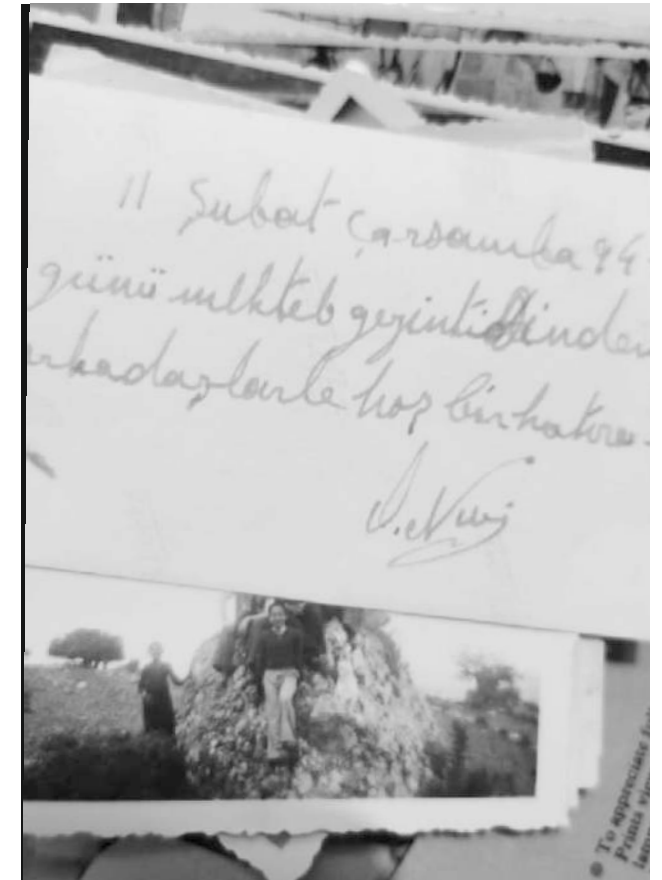 11 Şubat Çarşamba 94
günü mekteb gezintisinden
arkadaşlarle hoş bir hatıra
To appreciate
Prints